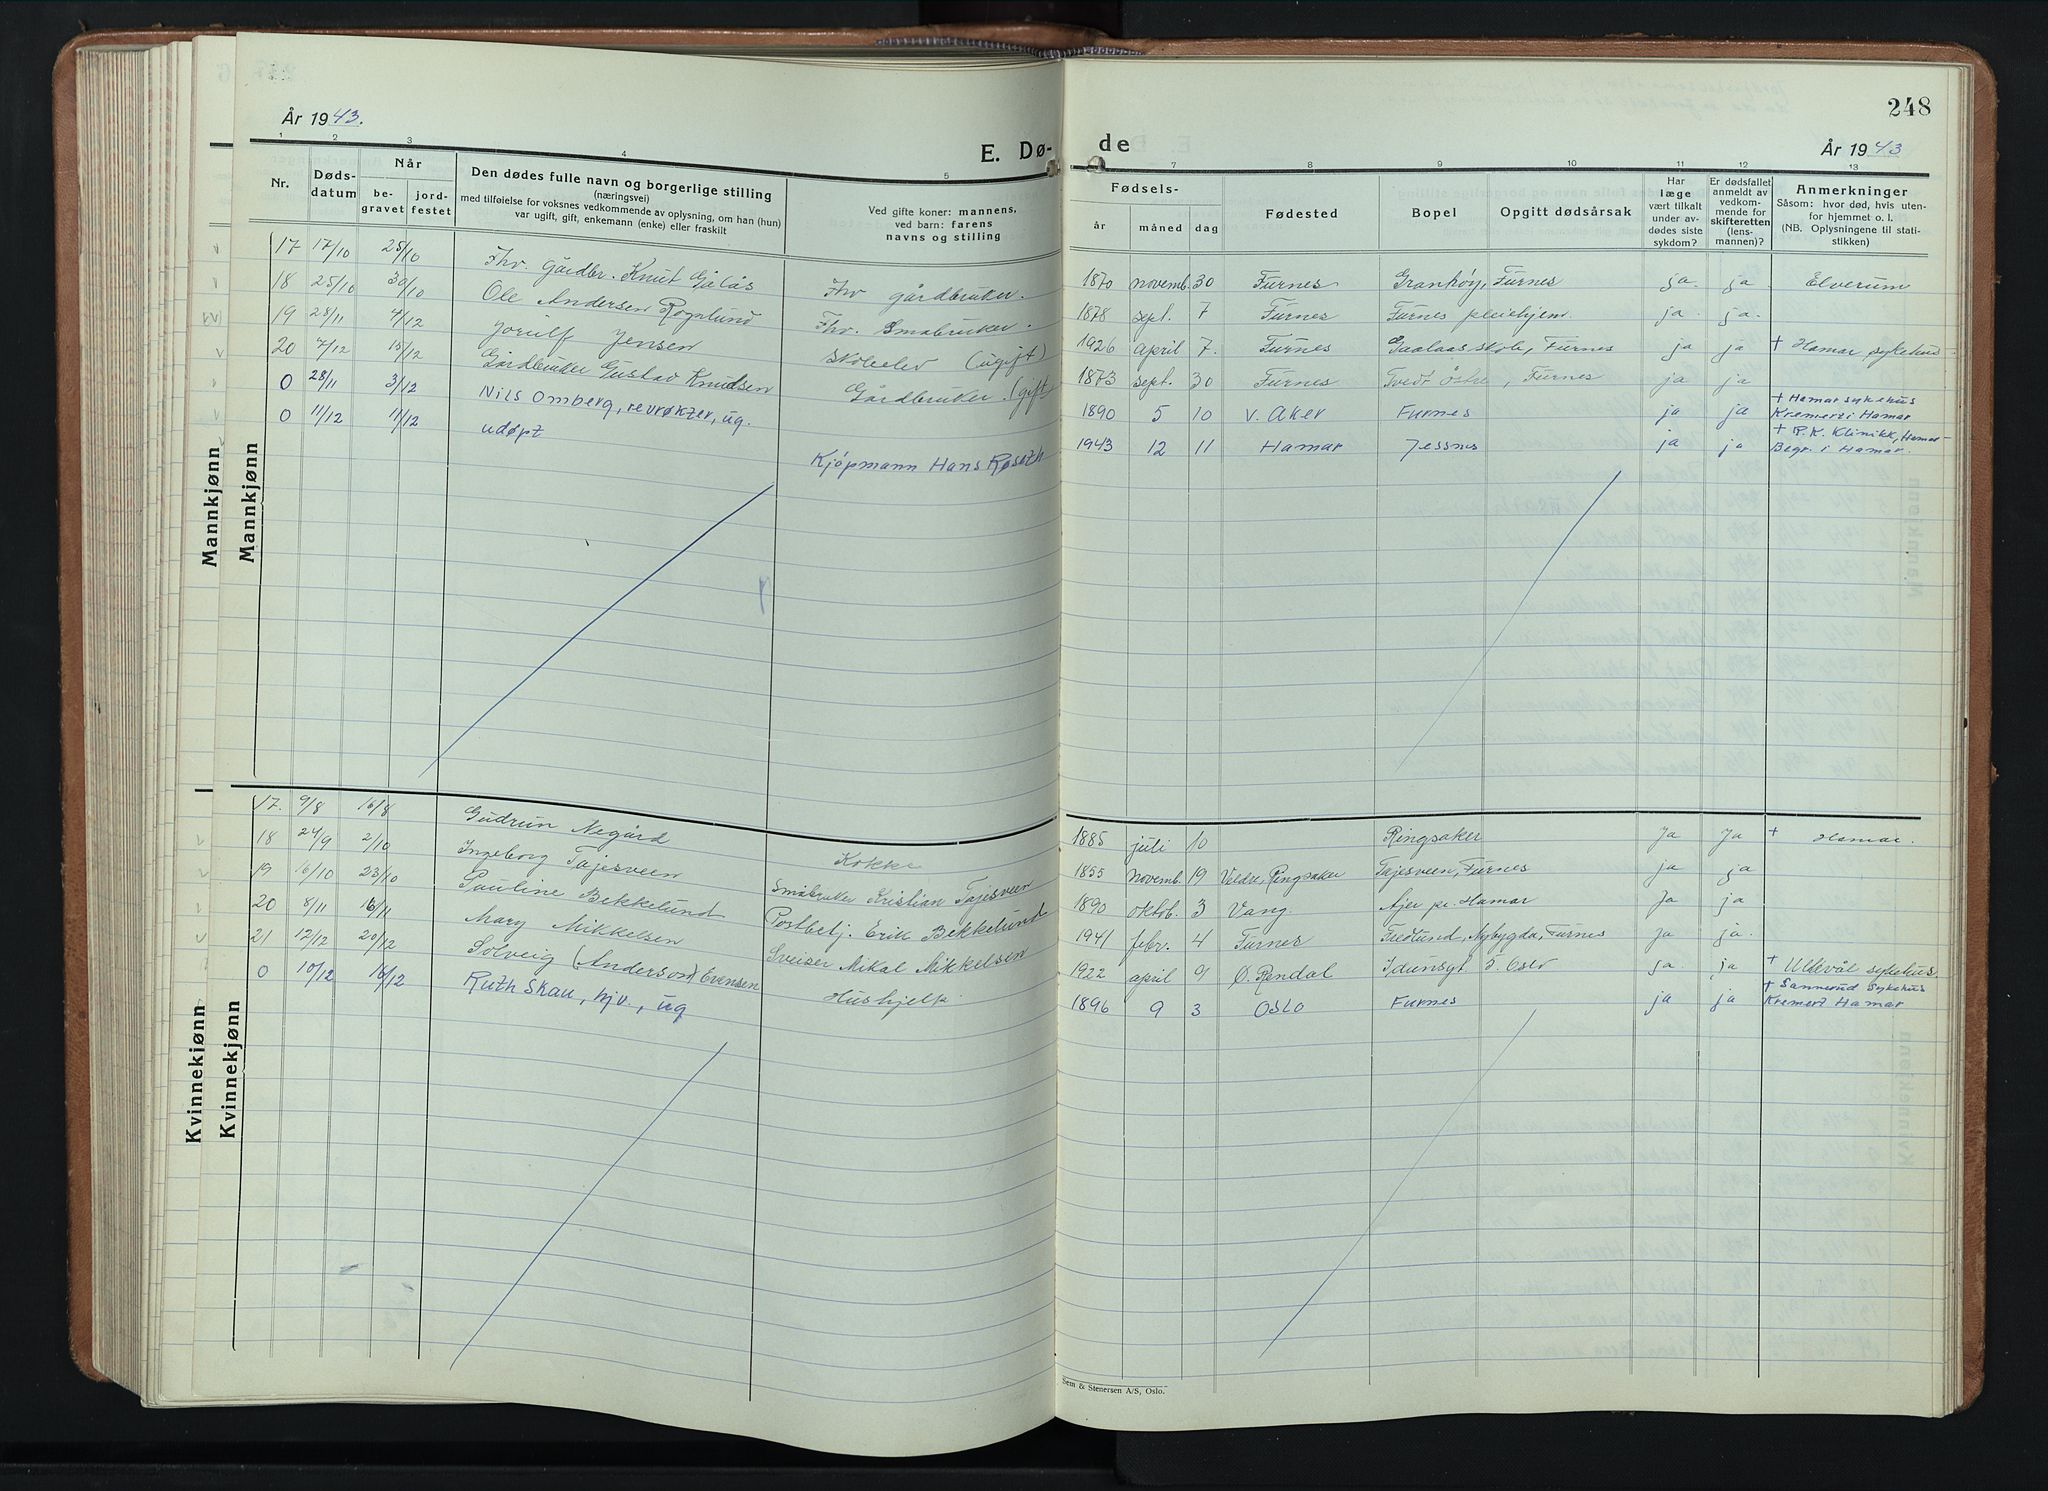 248
År 1943.
E. Dø-
de
År 1943
1 2 3 4 5 7 8 9 10 11 12 13
Nr.
Dødsdatum
Når
begravet
jordfestet
Den dødes fulle navn og borgerlige stilling
(næringsvei)
med tilføielse for voksnes vedkommende av oplysning, om han (hun)
var ugift, gift, enkemann (enke) eller fraskilt
Ved gifte koner: mannens,
ved barn: farens
navns og stilling
Fødsels-
år
måned
dag
Fødested
Bopel
Opgitt dødsårsak
Har
læge
vært tilkalt
under av-
dødes siste
sykdom?
Er dødsfallet
anmeldt av
vedkom-
mende for
skifteretten
(lens-
mannen)?
Anmerkninger
Såsom: hvor død, hvis uten-
for hjemmet o. l.
(NB. Oplysningene til stati-
stikken)
Mannkjønn
Mannkjønn
17 17/10 25/10 Fhv. gårdbr. Knut Gålås Fhv gårdbruker. 1870 novemb. 30 Furnes Granhøy, Furnes ja ja. Elverum
18 25/10 30/10 Ole Andersen Rognlund Fhv. Småbruker. 1878 sept. 7 Furnes Furnes pleiehjem. ja ja.
19 28/11 4/12 Jensen Skoleelev (ugift) 1926 april 7. Furnes Gaalaas skole, Furnes ja ja + Hamar sykehus
20 7/12 15/12 Gårdbruker Gustav Knudsen Gårdbruker. (gift) 1873 sept. 30 Furnes Tvedt Østre, Furnes ja ja
0 28/11 3/12 Nils Omberg, revrøkter, ug. 1890 5 10 V. Aker Furnes ja ja + Hamar sykehus
Kremert i Hamar
0 11/12 11/12 udøpt Kjøpmann Hans Røseth 1943 12 11 Hamar Jessnes ja ja + R.K. Klinikk, Hamar
Begr. i Hamar.
Kvinnekjønn
Kvinnekjønn
17. 9/8 16/8 Gudrun Negård Kokke 1885 juli 10 Ringsaker Ja Ja + Hamar.
18 24/9 2/10 Ingeborg Tajesveen Småbruker Kristian Tajesveen 1855 novemb. 19 Veldre, Ringsaker Tajesveen, Furnes ja ja
19 16/10 23/10 Pauline Bekkelund Postbetj. Erik Bekkelund 1890 oktob. 3 Vang. Ajer pr. Hamar Ja ja
20 8/11 16/11 Mary Mikkelsen Sveiser Mikal Mikkelsen 1941 febr. 4 Furnes Nybygda, Furnes Ja ja.
21 12/12 20/12 Solveig (Anderson) Evensen Hushjelp. 1922 april 9 Ø. Rendal Idunsgt 5. Oslo ja ja + Ullevål sykehus.
0 10/12 16/12 Ruth Skau, hjv., ug 1896 9 3 Oslo Furnes ja ja + Sannerud Sykehus
Kremert Hamar
Sem & Stenersen A/S, Oslo.